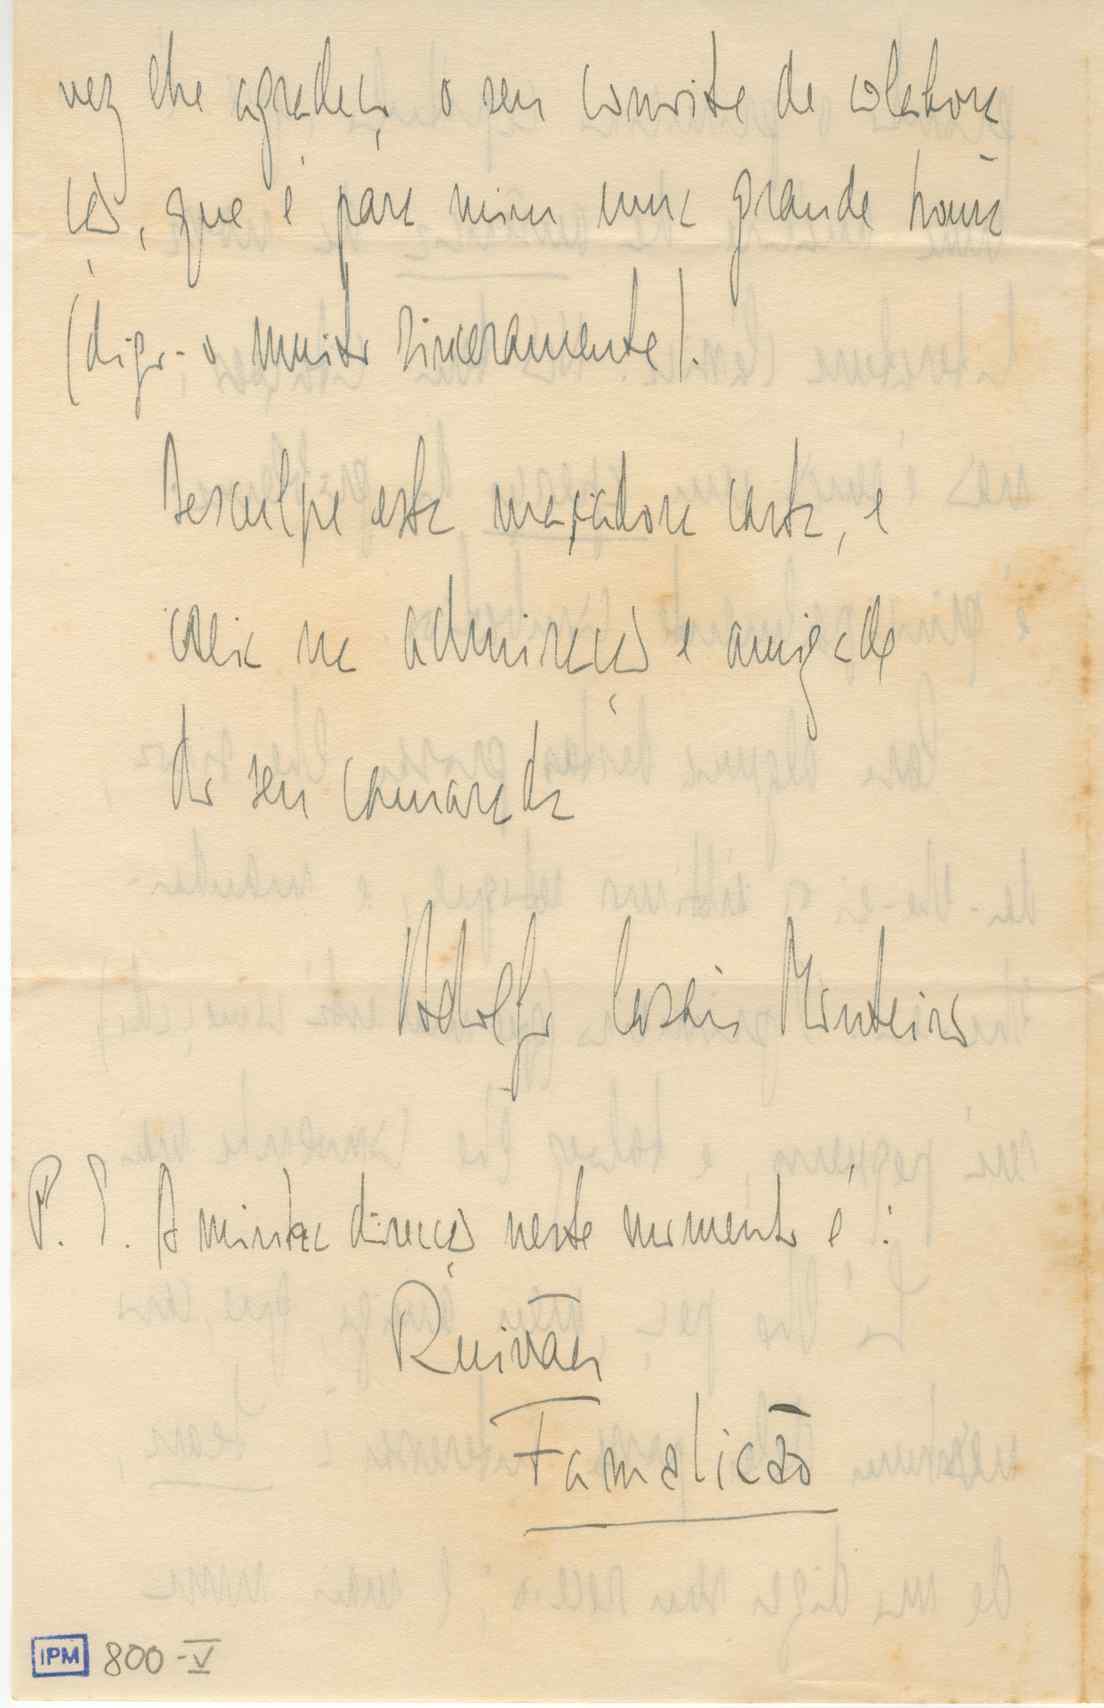 vez lhe agradeço o seu convite de colabora
ção, que é para mim uma grande honra
(digo-o muito sinceramente).
Desculpe esta maçadora carta, e
creia na admiração e amizade
do seu camarada
Adolfo Casais Monteiro
P. S. A minha direcção neste momento é :
Ruivães
Famalicão
IPM 800-V